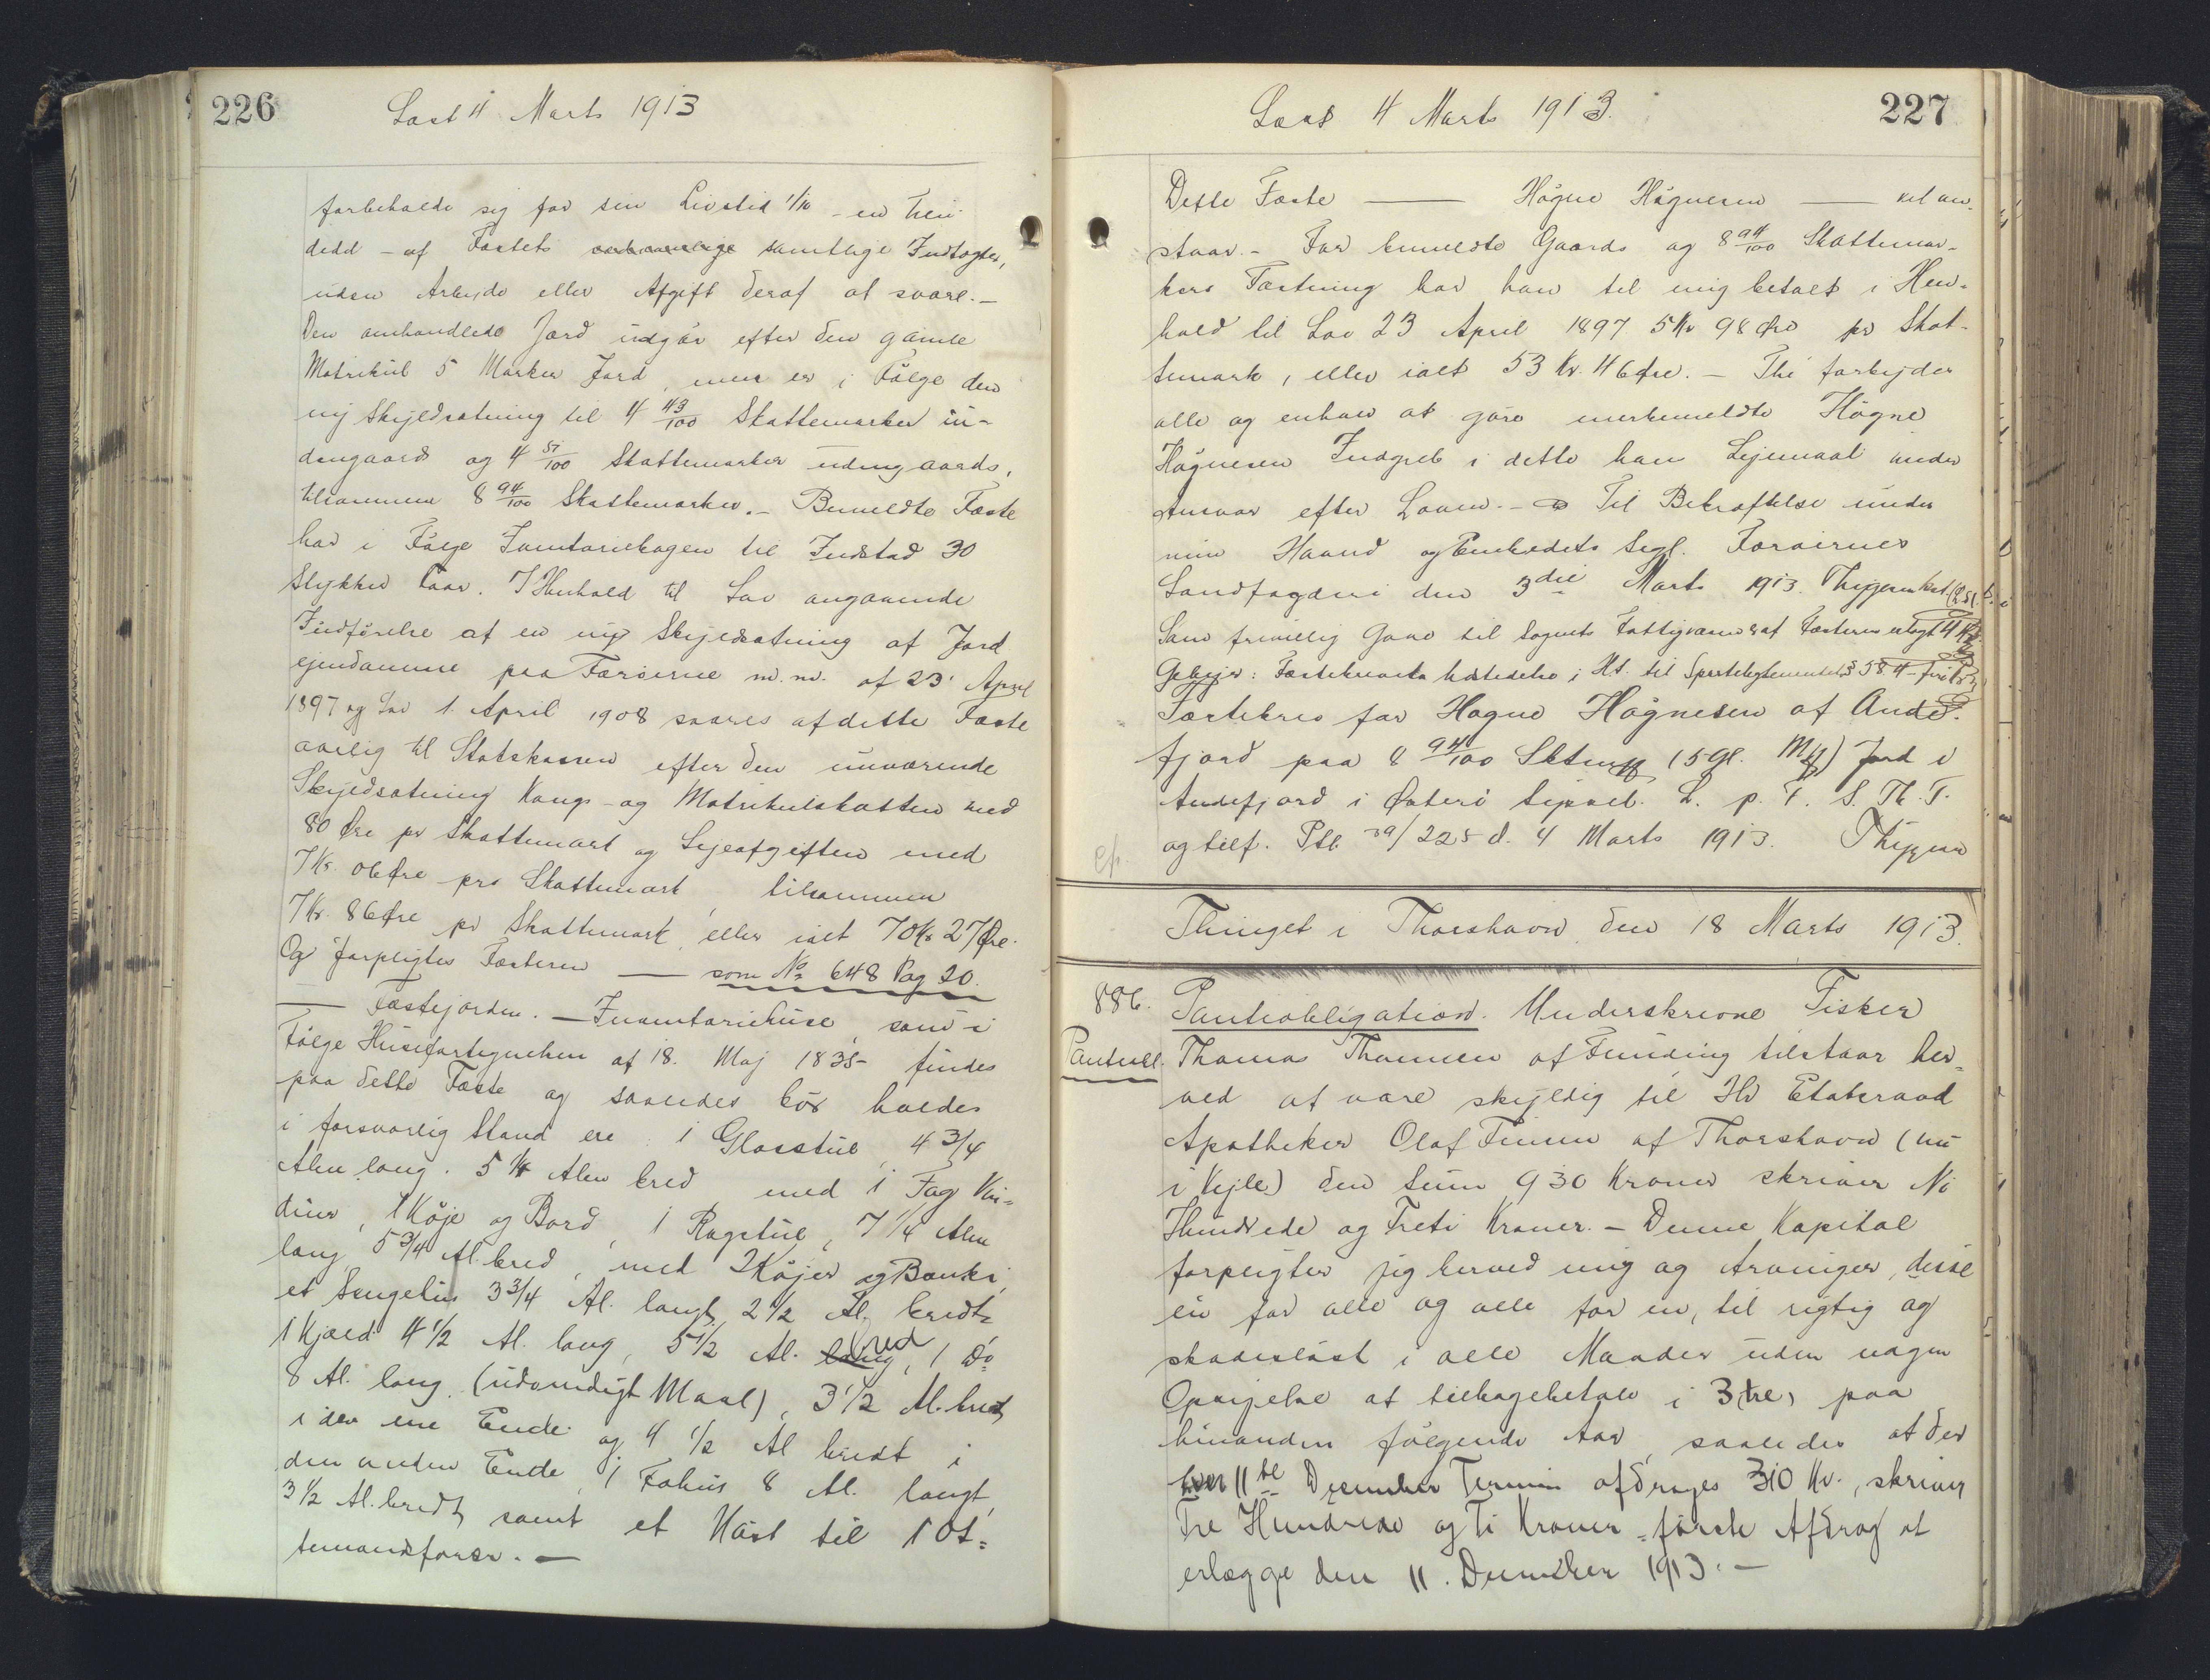 226
Læst 4 Marts 1913
forbeholde sig for sin Livstid 1/10 - en Tien-
dedel - af Fæstets samtlige Indtægter,
uden Arbejde eller Afgift deraf at svare. -
Den omhandlede Jord udgør efter den gamle
Matrikul 5 Marker Jord, men er i Følge den
ny Skyldsætning til 4 43/100 Skattemarker in-
dengaards og 4 51/100 Skattemarker udengaards,
tilsammen 8 94/100 Skattemarker. - Bemeldte Fæste
har i Følge Inventariebogen til Indstad 30
Stykker Faar. I Henhold til Lov angaaende
Indførelse af en ny Skyldsætning af Jord
ejendomme paa Færøerne m. m. af 23' April
1897 og Lov 1. April 1908 svares af dette Fæste
aarlig til Statskassen efter den nuværende
Skyldsætning Kongs- og Matrikulskatten med
80 Øre pr Skattemark og Lejeafgiften med
7 Kr. 06 Øre pro Skattemark, tilsammen
7 Kr. 86 Øre pr Skattemark, eller ialt 70 Kr 27 Øre.
Og forpligtes Fæsteren — som No 648 Pag 20.
— Fæstejorden. - Inventariehuse, som i
Følge Husefortegnelsen af 18. Maj 1835 findes
paa dette Fæste og saaledes bør holdes
i forsvarlig Stand ere: 1 Glasstue, 4 3/4
Alen lang. 5 1/4 Alen bred med 1 Fag Vin-
duer, 1 Køje og Bord, 1 Rogstue, 7 1/4 Alen
lang, 5 3/4 Al. bred, med 2 Køjer og Bænke,
et Sengehus 3 3/4 Al. langt, 2 1/2 Al. bredt,
1 Kjæld 4 1/2 Al. lang, 5 1/2 Al. lang bred, 1 Do
8 Al. lang. (udvendigt Maal), 3 1/2 Al. bred
i den ene Ende og 4 1/2 Al bredt i
den anden Ende, 1 Fæhus 8 Al. langt,
3 1/2 Al. bredt, samt et Nøst til 1 Ot-
temandsfarer. -
227
Læst 4 Marts 1913.
Dette Fæste — Høgne Høgnesen — vel an-
staar. - For bemeldte Gaards og 8 94/100 Skattemar-
kers Fæstning har han til mig betalt i Hen-
hold til Lov 23 April 1897 5 Kr 98 Øre pr Skat-
temark, eller ialt 53 Kr. 46 Øre. - Thi forbyder
alle og enhver at gøre merbemeldte Høgne
Høgnesen Indgreb i dette hans Lejemaal under
Ansvar efter Loven. - Til Bekræftelse under
min Haand og Embedets Segl. Færøernes
Landfogderi den 3die Marts 1913. Thygesen kst.
Som frivillig Gave til Sognets Fattigvæsen af Fæsteren erlagt 4 Kr
Gebyr: Fæstebrevets Udstedelse i Ht. til Sportelreglementets § 58 4 - fire Kr.
Fæstebrev for Høgne Høgnesen af Ande-
fjord paa 8 94/100 Sktmrk (5 gl. Mk) Jord i
Andefjord i Østerø Syssel. L. p. F. S. Th. T.
og tilf. Ptb 29/225 d. 4 Marts 1913. Thygesen
Thinget i Thorshavn den 18 Marts 1913.
886.
Panteobligation. Underskrevne Fisker
Thomas Thomsen af Funding tilstaar her-
ved at være skyldig til Hr Etatsraad
Apotheker Olaf Finsen af Thorshavn (nu
i Vejle) den Sum 930 Kroner skriver Ni
Hundrede og Treti Kroner. - Denne Kapital
forpligter jeg herved mig og Arvinger, disse
en for alle og alle for en, til rigtig og
skadesløst i alle Maader uden nogen
Opsigelse at tilbagebetale i 3 (tre) paa
hinanden følgende Aar, saaledes at der
hver 11te December Termin afdrages 310 Kr., skriver
Tre Hundrede og Ti Kroner, første Afdrag at
erlægge den 11. December 1913. -